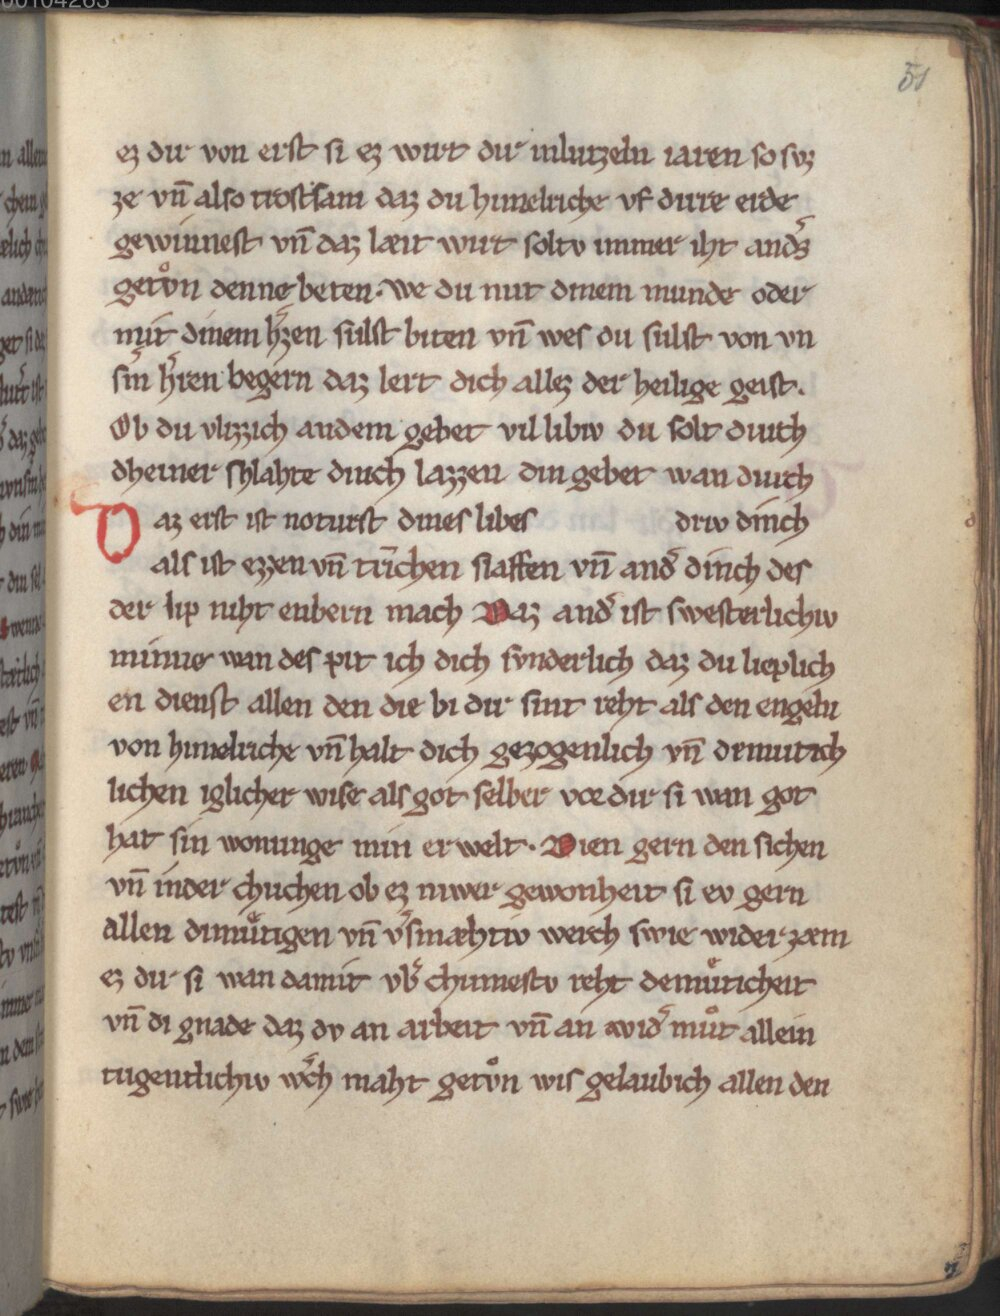 51
ez dir von erst si ez wirt dir inkurzeln iaren so svz
ze vn̄ also trostsam daz du himelriche vf dirre erde
gewinnest vn̄ daz læit wirt soltv immer iht anders̄
getvͦn denne beten. We du mit dinem munde oder
mit dinem hˢzen sulst biten vn̄ wes du sulst von vn
sˢm hˢren begern daz lert dich allez der heilige geist.
Ob du vlizzich andem gebet vil libiv du solt durch
dheiner shlahte dinch lazzen din gebet wan durch
driv dinch
Daz erst ist noturft dines libes
als ist ezzen vn̄ trīchen slaffen vn̄ andˢ dinch des
der lip niht enbern mach Daz andˢ ist swesterlichiv
minne wan des pit ich dich svnderlich daz du lieplich
en dienst allen den die bi dir sint reht als den engeln
von himelriche vn̄ halt dich gezogenlich vn̄ demutich
lichen iglicher wise als got selber vor dir si wan got
hat sin wonunge in in erwelt. Dien gern den sichen
vn̄ inder chuchen ob ez niwer gewonheit si ev gern
allen dimuͤtigen vn̄ vˢsmæhtiv werch swie widerzæm
ez dir si wan damit vbˢ chumestv reht demuͤticheit
vn̄ di gnade daz dv an arbeit vn̄ an widˢ muͦt allein
tugentlichiv wˢch maht getvͦn wis gelaubich allen den